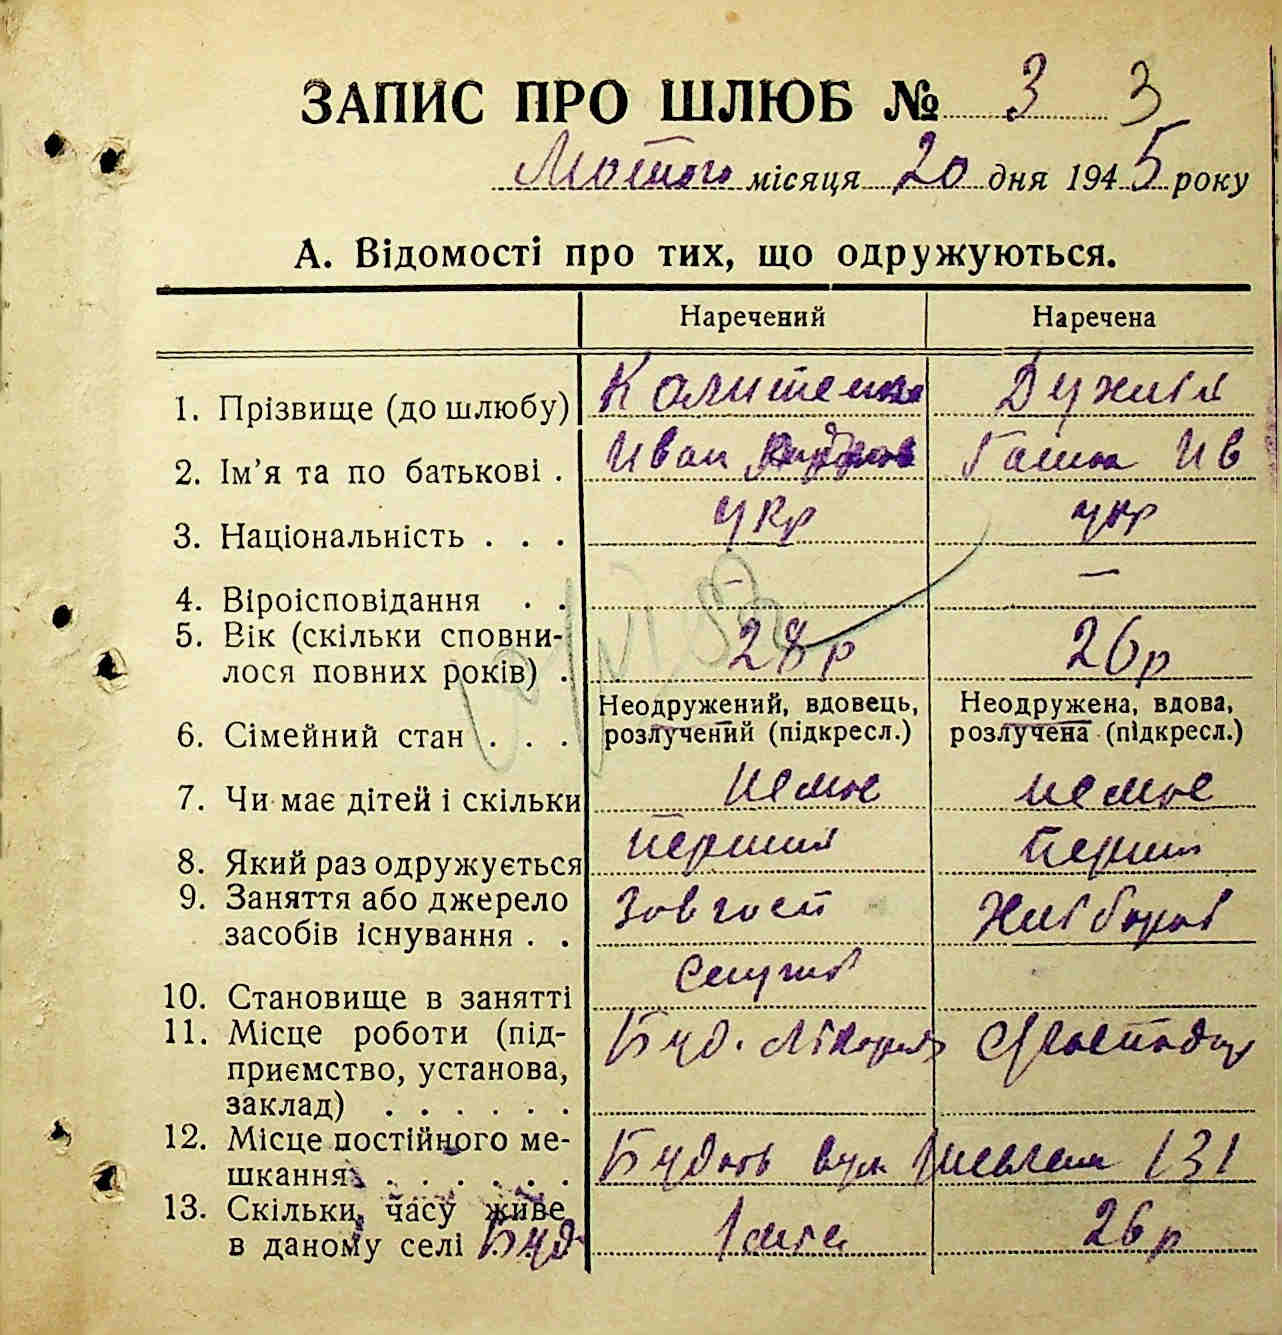 ЗАПИС ПРО ШЛЮБ № 3 3
Лютого місяця 20 дня 1945 року
А. Відомості про тих, що одружуються.
Наречений Наречена
1. Прізвище (до шлюбу)
2. Ім’я та по батькові . Иван Ив
3. Національність . . . укр укр
4. Віроісповідання . . – –
5. Вік (скільки сповни-
лося повних років) . 28р 26р
Неодружений, вдовець, Неодружена, вдова,
6. Сімейний стан . . . розлучений (підкресл.) розлучена (підкресл.)
7. Чи має дітей і скільки немає немає
8. Який раз одружується перший
9. Заняття або джерело Зав госп
засобів існування . .
10. Становище в занятті
11. Місце роботи (під- Буд.
приємство, установа,
заклад) . . . . . .
12. Місце постійного ме- вул 131
шкання . . . . . .
13. Скільки часу живе
в даному селі Буд 26р